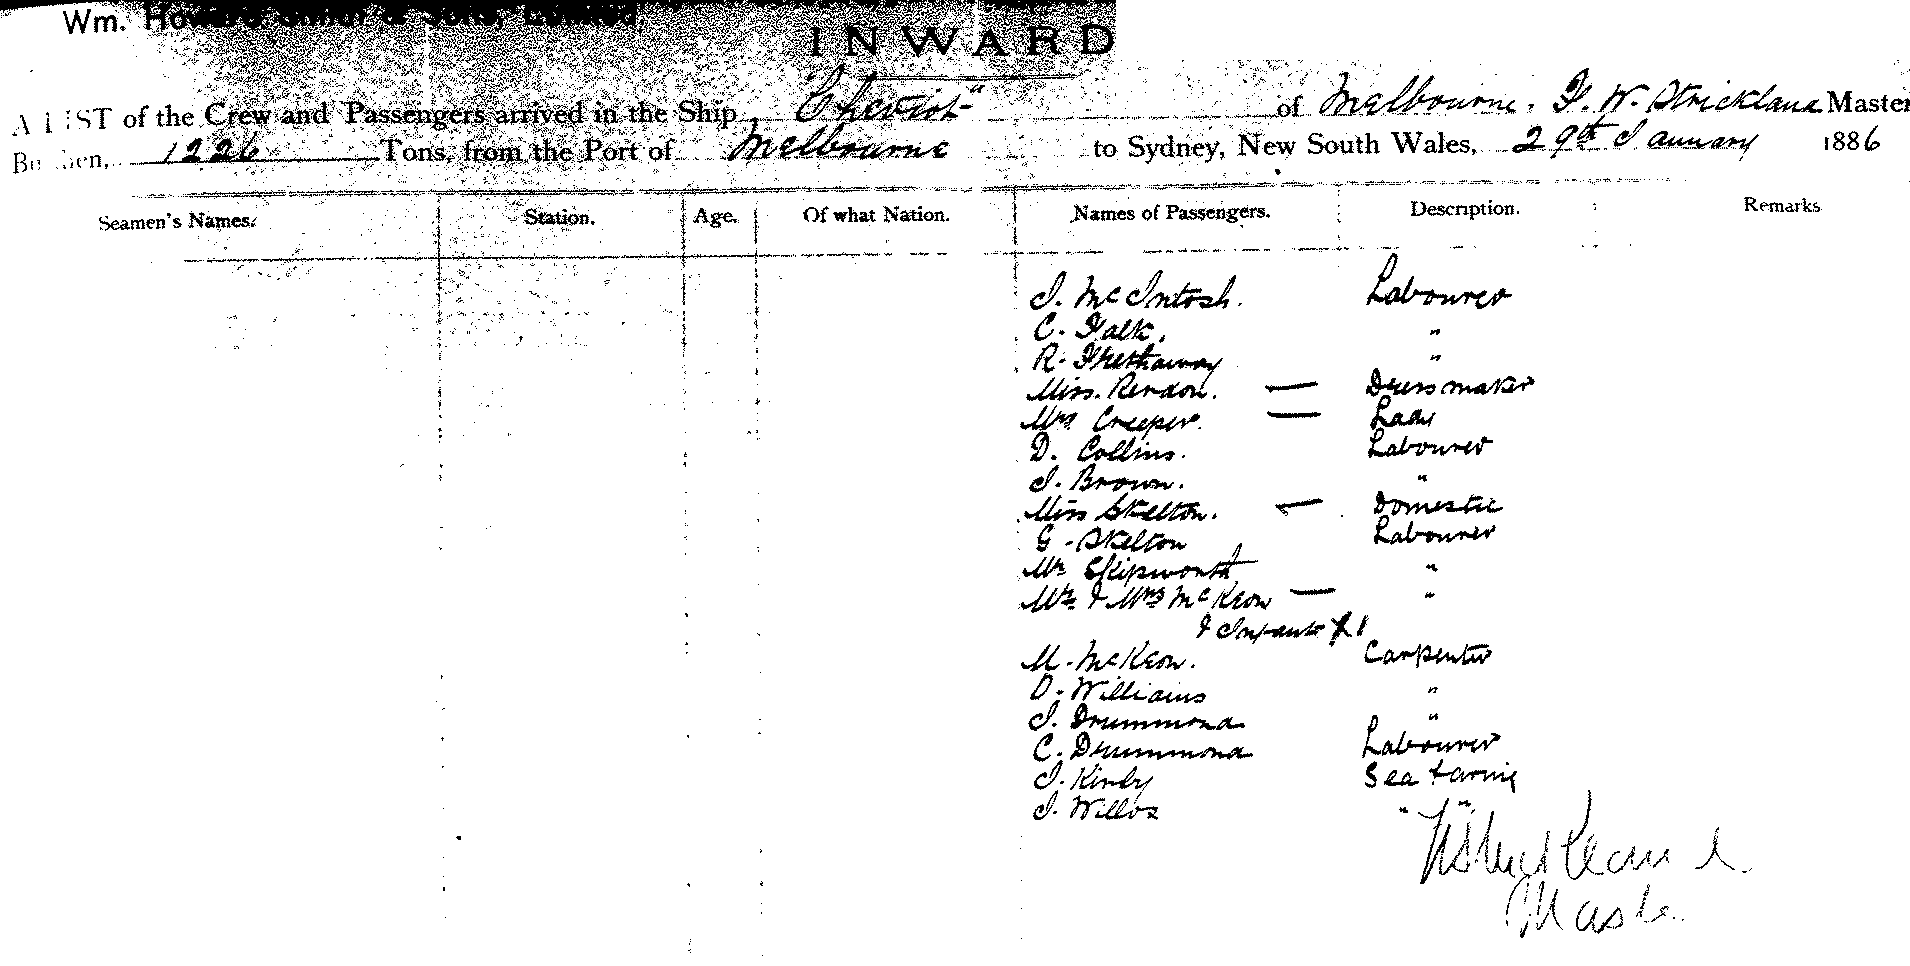 Wm. Howard Smith & Sons, Limited
INWARD
A LIST of the Crew and Passengers arrived in the Ship "Cheviot" of Melbourne, F. W. Strickland Master
Burthen, 1226 Tons, from the Port of Melbourne to Sydney, New South Wales, 29th January 1886
Seamen's Names. Station. Age. Of what Nation. Names of Passengers. Description. Remarks
J. McIntosh. Labourer
C. Falk. "
R. "
Miss. Rendon. — Dressmaker
Mrs Creeper. — Lady
D. Collins. Labourer
J. Brown. "
Miss Skelton. — Domestic
G. Skelton Labourer
Mr Skipworth "
Mr & Mrs McKeon — "
& Infant 1
M. McKeon. Carpenter
D. Williams "
J. Drummond "
C. Drummond Labourer
J. Kirby Sea faring
J. Willos " "
Master